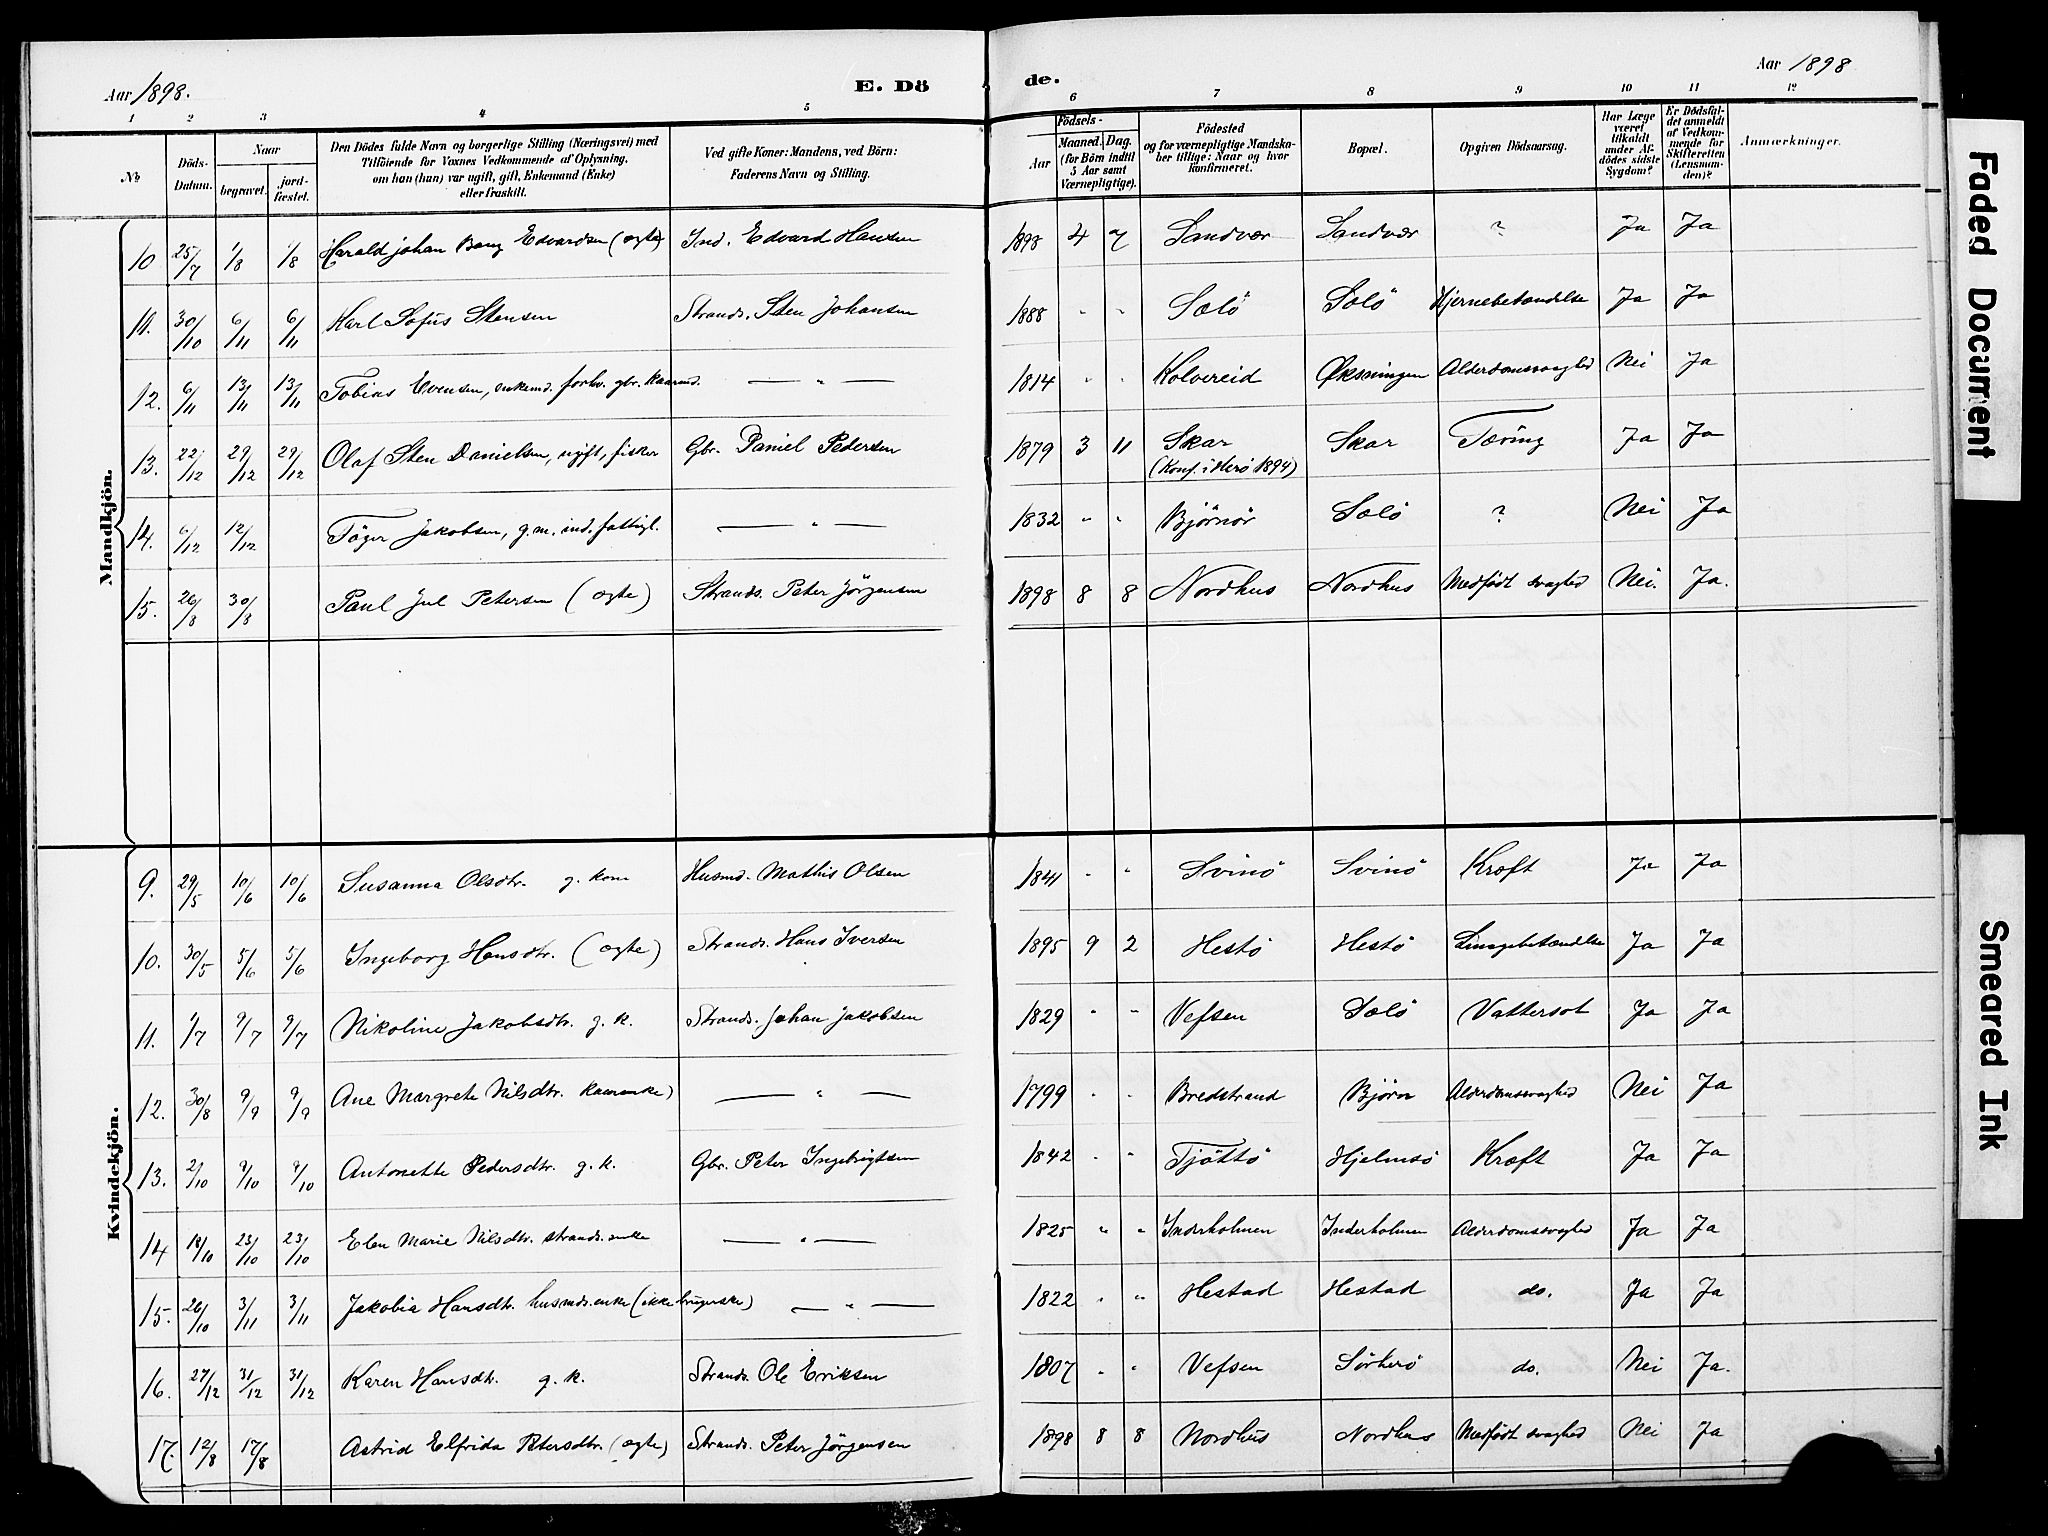 Aar 1898.
E. Dö
de.
Aar 1898
1 2 3 4 5 6 7 8 9 10 11 12
№
Döds-Datum.
Naar
begravet.
jord-fæstet.
Den Dödes fulde Navn og borgerlige Stilling (Næringsvei) med
Tilföiende for Voxnes Vedkommende af Oplysning,
om han (hun) var ugift, gift, Enkemand (Enke)
eller fraskilt.
Ved gifte Koner: Mandens, ved Börn:
Faderens Navn og Stilling.
Födsels-
Aar
Maaned. Dag.
(for Börn indtil
5 Aar samt
Værnepligtige).
Födested
og for værnepligtige Mandska-
ber tillige: Naar og hvor
konfirmeret.
Bopæl.
Opgiven Dödsaarsag.
Har Læge
været
tilkaldt
under Af-
dödes sidste
Sygdom?
Er Dödsfal-
det anmeldt
af Vedkom-
mende for
Skifteretten
(Lensman-
den)?
Anmærkninger.
Mandkjön.
10 25/7 1/8 1/8 Harald Johan Bang Edvardsen (ægte) Ind. Edvard Hansen 1898 4 7 Sandvær Sandvær ? Ja Ja
11. 30/10 6/11 6/11 Karl Sofus Stensen Strands. Sten Johansen 1888 " " Sælö Sælö Hjernebetændelse Ja Ja
12. 6/11 13/11 13/11 Tobias Evensen, enkemd. forhv. gbr. kaarmd. — " — 1814 " " Kolvereid Øksningen Alderdomssvaghed Nei Ja
13. 22/12 29/12 29/12 Olaf Sten Danielsen, ugift, fisker Gbr. Daniel Pedersen 1879 3 11 Skar Skar Tæring Ja Ja
(Konf. i Herö 1894)
14. 6/12 12/12 Töger Jakobsen, g.m. ind. fattigl. — " — 1832 " " Bjørnör Sælö ? Nei Ja
15. 26/8 30/8 Paul Jul Petersen (ægte) Strands. Peter Jörgensen 1898 8 8 Nordhus Nordhus Medfödt svaghed Nei. Ja.
Kvindekjön.
9. 29/5 10/6 10/6 Susanna Olsdtr. g. kone Husmd. Mathis Olsen 1841 " " Svinö Svinö Kræft Ja Ja
10. 30/5 5/6 5/6 Ingeborg Hansdtr. (ægte) Strands. Hans Iversen 1895 9 2 Hestö Hestö Lungebetændelse Ja Ja
11. 1/7 9/7 9/7 Nikoline Jakobsdtr. g. k. Strands. Johan Jakobsen 1829 " " Vefsen Sælö Vattersot Ja Ja
12. 30/8 9/9 9/9 Ane Margrete Nilsdtr. kaarenke) — " — 1799 " " Bredstrand Bjørn Alderdomssvaghed Nei Ja
13. 2/10 9/10 9/10 Antonette Pedersdtr. g. k. Gbr. Peter Ingebrigtsen 1842 " " Tjöttö Hjelmsö Kræft Ja Ja
14 18/10 23/10 23/10 Elen Marie Nilsdtr. strands. enke — " — 1825 " " Inderholmen Inderholmen Alderdomssvaghed Ja Ja
15. 26/10 3/11 3/11 Jakobia Hansdtr. husmds.enke (ikke brugerske) — " — 1822 " " Hestad Hestad do. Ja Ja
16. 27/12 31/12 31/12 Karen Hansdtr. g. k. Strands. Ole Eriksen 1807 " " Vefsen Sörherö do. Nei Ja.
17. 12/8 17/8 Astrid Elfrida Petersdtr. (ægte) Strands. Peter Jörgensen 1898 8 8 Nordhus Nordhus Medfödt svaghed Nei Ja
Faded Document
Smeared Ink